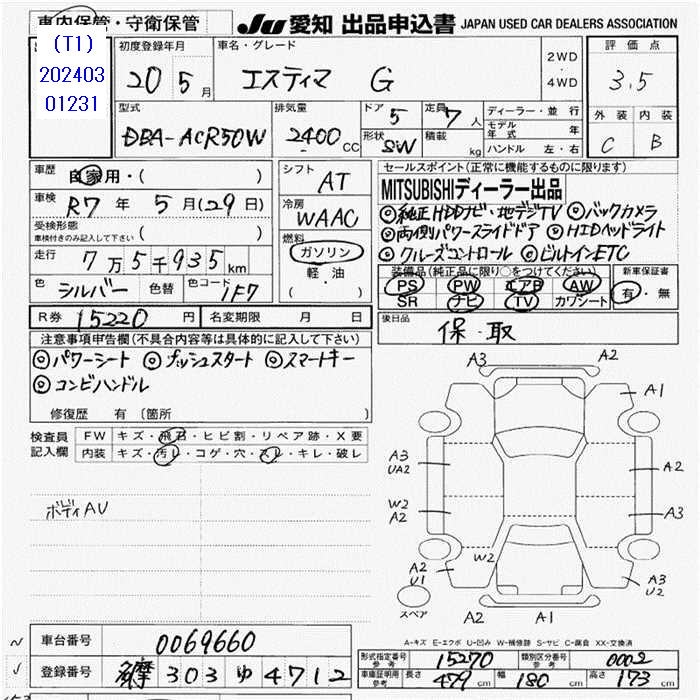 車内保管・守衛保管
JU 愛知 出品申込書 JAPAN USED CAR DEALERS ASSOCIATION
(T1)
202403
01231
初度登録年月
20 5月
車名・グレード
エスティマ G
2WD
・
4WD
評価点
3.5
外装 内装
C B
型式
DBA-ACR50W
排気量
2400 CC
ドア 5
形状 SW
定員 7人
積載 kg
ディーラー・並行
モデル年式 年
ハンドル 左・右
車歴 自家用・( )
車検 R7年 5月(29日)
受検形態
車検付きのみ記入して下さい ( )
走行 7万5千935km
色 シルバー 色替 色コード 1F7
シフト AT
冷房 WAAC
燃料
ガソリン
軽油
( )
R券 15220円 名変期限 月 日
セールスポイント(正常に機能するものに限ります)
MITSUBISHIディーラー出品
◎純正HDDナビ・地デジTV ◎バックカメラ
◎両側パワースライドドア ◎HIDヘッドライト
◎クルーズコントロール ◎ビルトインETC
装備品(純正品に限り○をつけてください)
PS PW エアB AW
SR ナビ TV カワシート
新車保証書
有・無
後日品
保・取
注意事項申告欄(不具合内容等は具体的に記入して下さい)
◎パワーシート ◎プッシュスタート ◎スマートキー
◎コンビハンドル
修復歴 有 〔箇所 〕
検査員
記入欄
FW キズ・飛石・ヒビ割・リペア跡・X要
内装 キズ・汚レ・コゲ・穴・スレ・キレ・破レ
ボディAU
A3 A2
A1
A3
UA2
A2
W2
A2
A3
W2
A2
U1
A3
U2
スペア
A2 A1
A-キズ E-エクボ U-凹み W-補修跡 S-サビ C-腐食 XX-交換済
車台番号 0069660
登録番号 303 ゆ 4712
形式指定番号
参考
15270
類別区分番号
参考
0002
車庫証明用
参考
長さ 479cm 幅 180cm 高さ 173cm